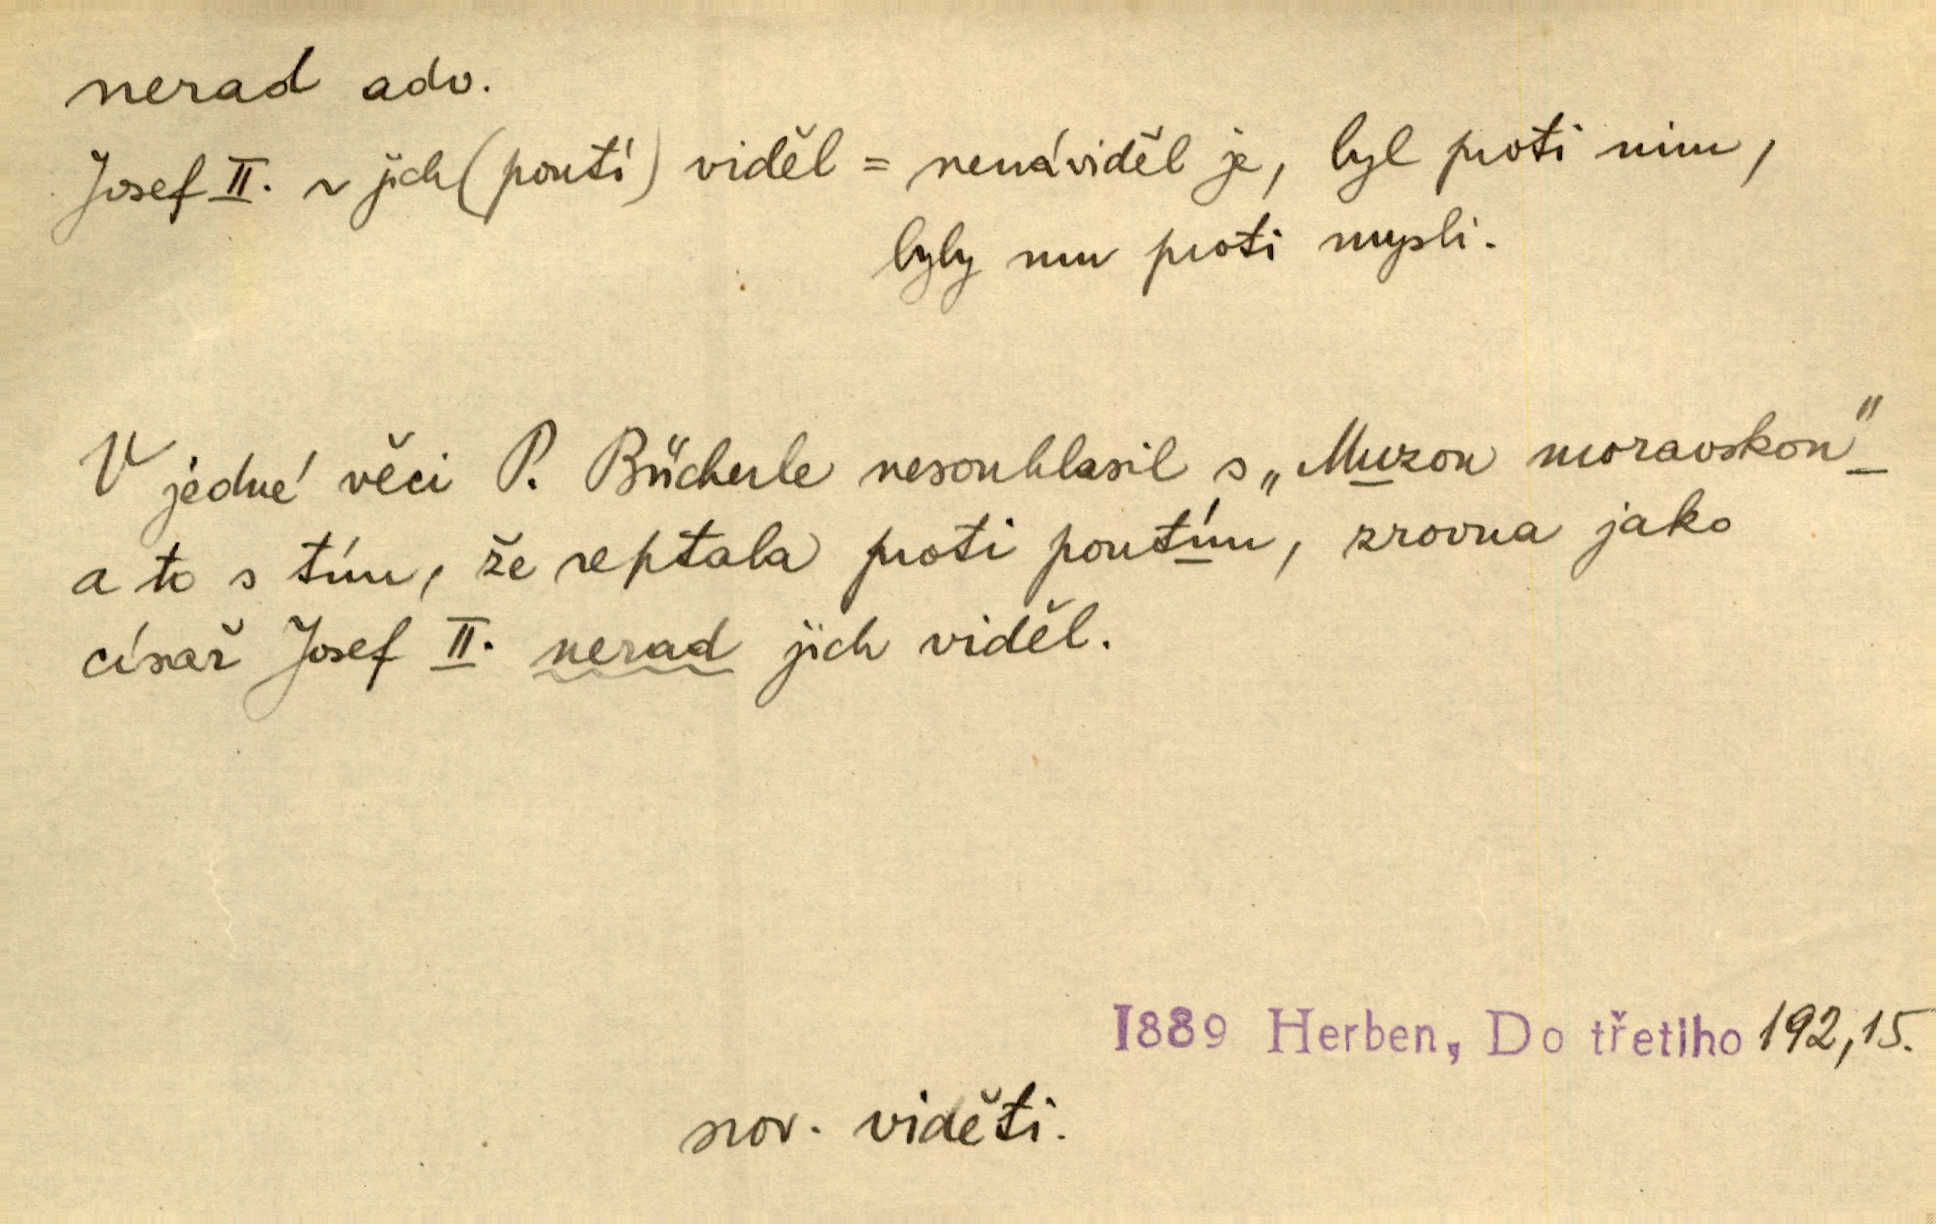 nerad adv.
Josef II. ~ jich (poutí) viděl = nenáviděl je, byl proti nim,
byly mu proti mysli.
V jedné věci P. Bücherle nesouhlasil s „Muzou moravskou"
a to s tím, že reptala proti poutím, zrovna jako
císař Josef II. nerad jich viděl.
1889 Herben, Do třetího 192,15.
srov. viděti.